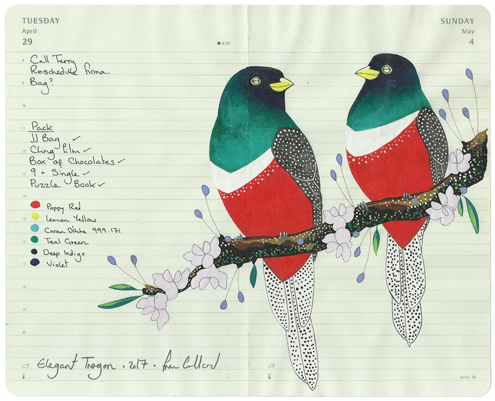 TUESDAY
April
29
Call Terry
Reschedule Fiona
Bag?
Pack
JJ Bag ✓
Cling film ✓
Box of Chocolates ✓
9 + Single ✓
Puzzle Book ✓
Poppy Red
Lemon Yellow
Caran D'Ache 999.171
Teal Green
Deep Indigo
Violet
Elegant Trogon . 2017 .
SUNDAY
May
4